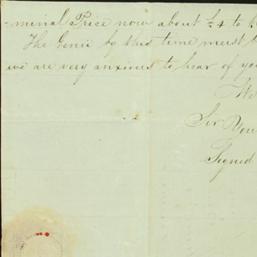 -minal Price now about £4 to
The Genii by this time must
we are very anxious to hear of you
We
Sir You
Signed